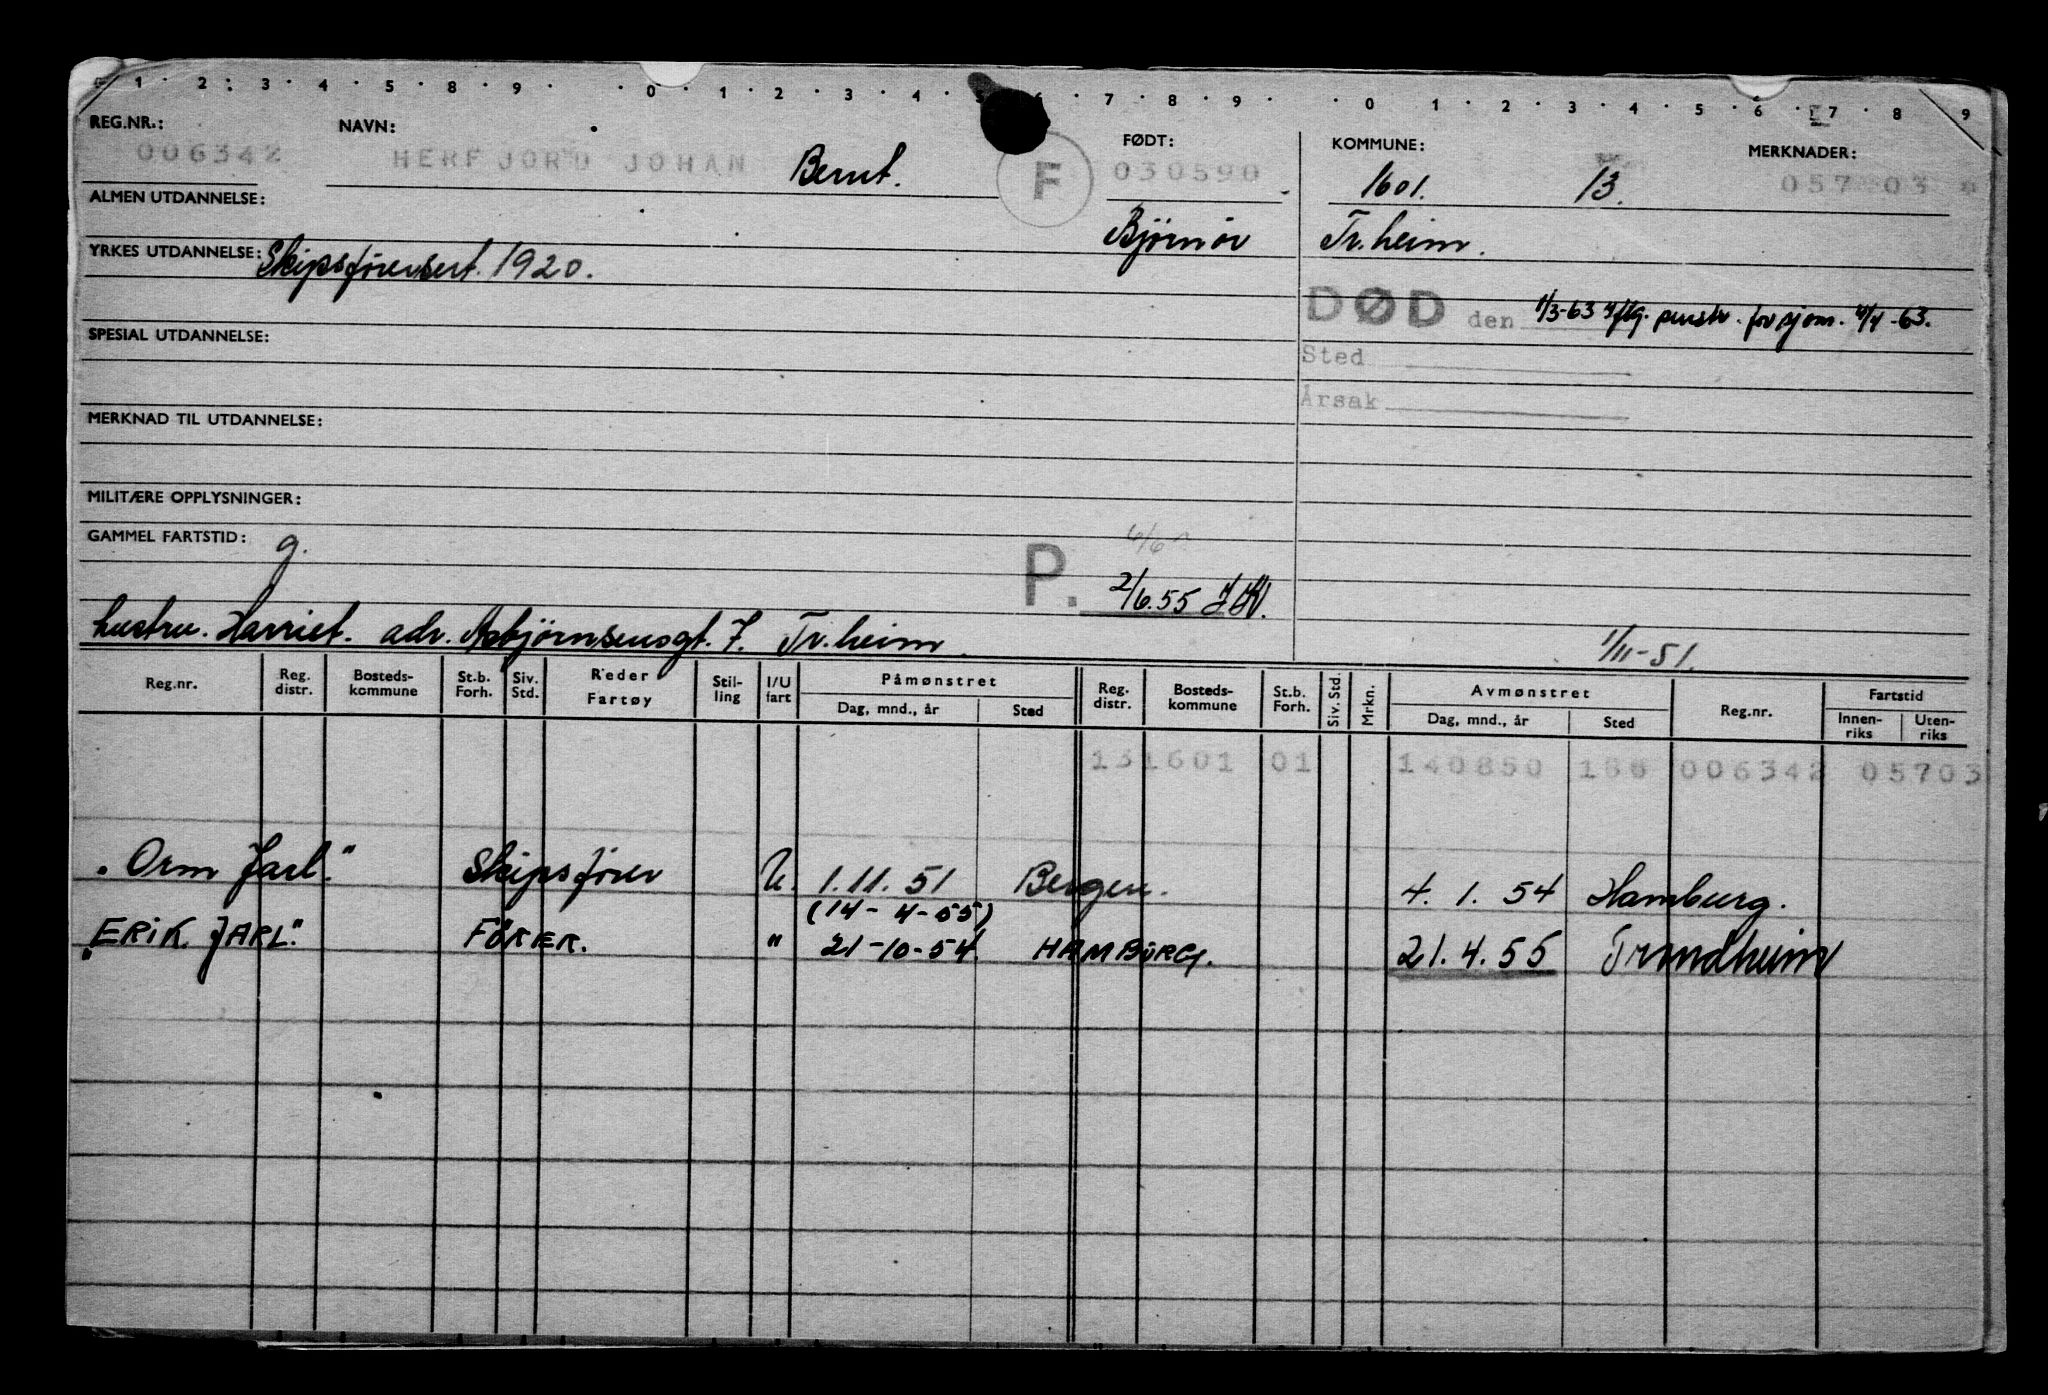 0 · 1 · 2 · 3 · 4 · 5 · 8 · 9 · · 0 · 1 · 2 · 3 · 4 · 5 · 6 · 7 · 8 · 9 · · 0 · 1 · 2 · 3 · 4 · 5 · 6 · 7 · 8 · 9
REG.NR.: NAVN: FØDT: KOMMUNE: MERKNADER:
006342 HERFJORD JOHAN Bernt. F 030590 1601. 13. 057 03
ALMEN UTDANNELSE:
Bjørnør Tr.heim.
YRKES UTDANNELSE: Skipsførersert. 1920.
DØD den 1/3-63 iflg. penstr. for sjøm. 4/4-63.
SPESIAL UTDANNELSE:
Sted
Årsak
MERKNAD TIL UTDANNELSE:
MILITÆRE OPPLYSNINGER:
GAMMEL FARTSTID: g.
P. 2/6.55
hustru. Harriet. adr. Asbjørnsensgt. 7. Tr.heim.
1/11-51.
Reg.nr. Reg. distr. Bosteds-kommune St.b. Forh. Siv. Std. Reder Fartøy Stil-ling I/U fart Påmønstret Dag, mnd., år Sted Reg. distr. Bosteds-kommune St.b. Forh. Siv. Std. Mrkn. Avmønstret Dag, mnd., år Sted Reg.nr. Fartstid Innen-riks Uten-riks
131601 01 140850 166 006342 05703
"Orm Jarl." Skipsfører U. 1.11.51 Bergen. 4.1.54 Hamburg.
(14-4-55)
"ERIK JARL." FÖRER. " 21-10-54. HAMBURG. 21.4.55 Trondheim